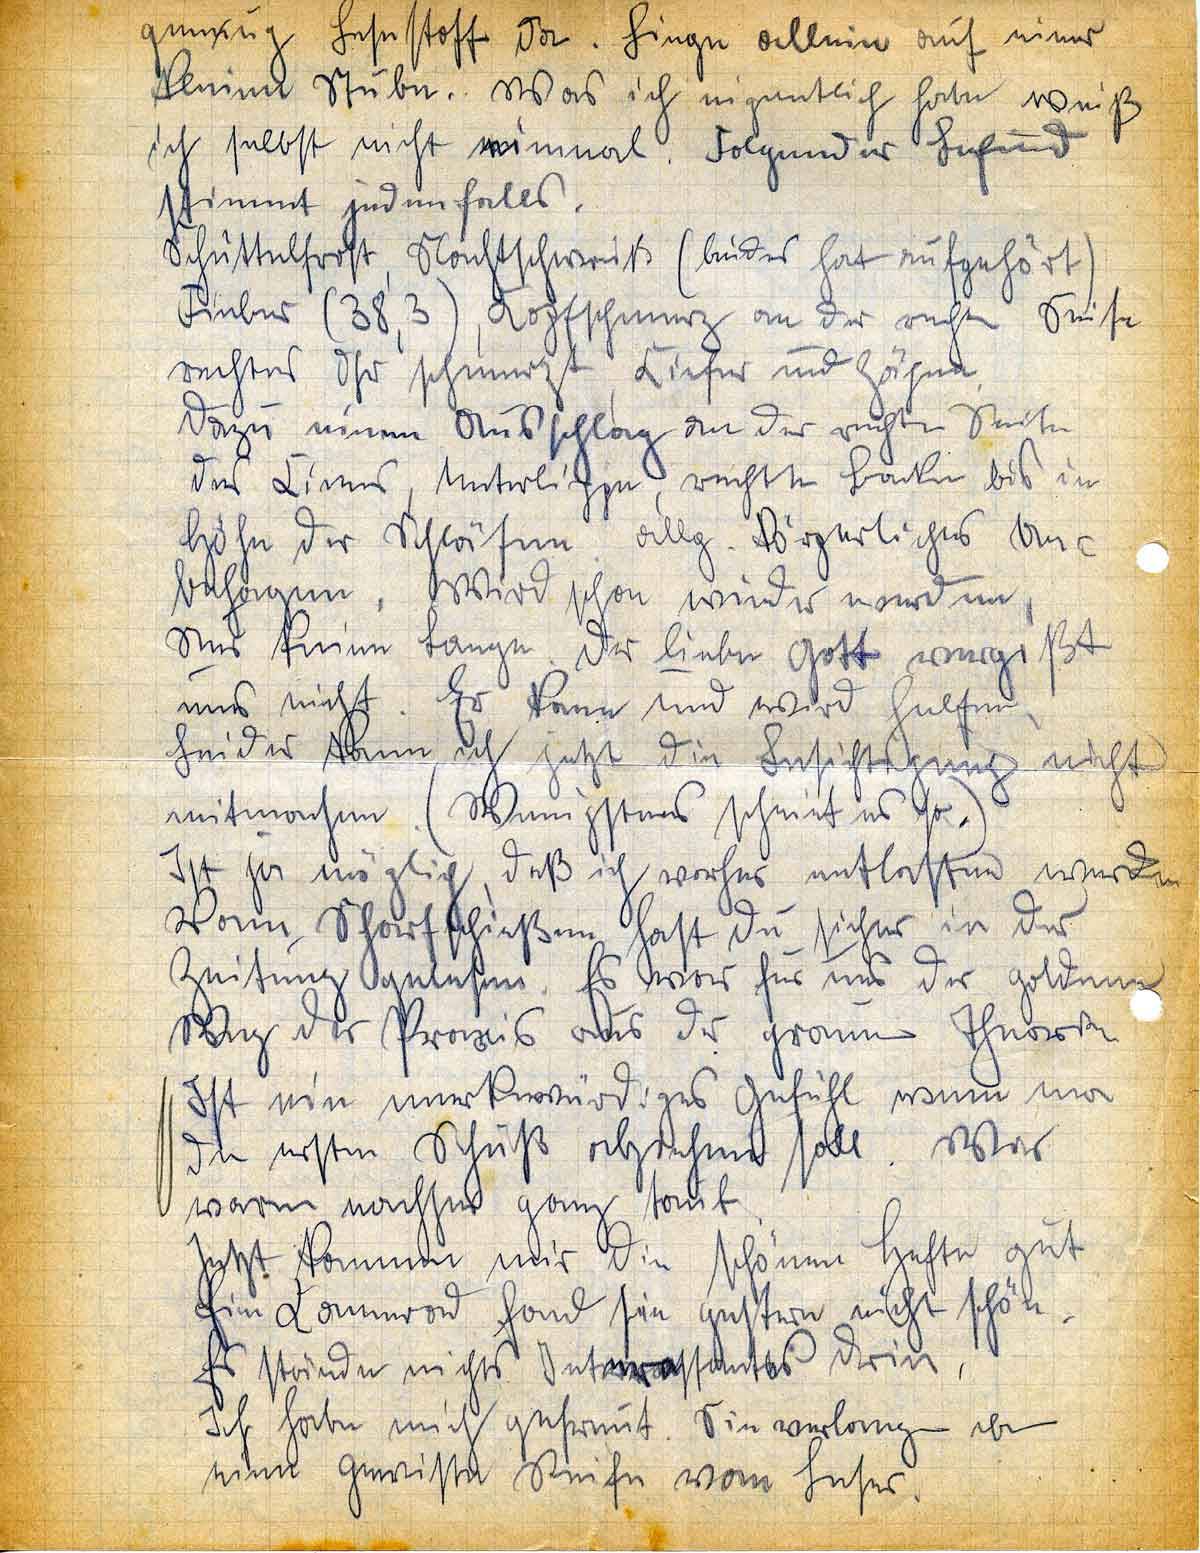 genug Lesestoff da. Liege allein auf einer
kleinen Stube. Was ich eigentlich habe weiß
ich selbst nicht einmal. Folgender Befund
stimmt jedenfalls.
Schüttelfrost, Nachtschweiß (beides hat aufgehört)
Fieber (38,3), Kopfschmerz an der rechten Seite
rechtes Ohr schmerzt, Kiefer und Zähne,
dazu einen Ausschlag an der rechten Seite
des Kinns, Unterlippe, rechte Backe bis in
Höhe der Schläfen. allg. körperliches Un-
behagen. Wird schon wieder werden,
Nur keine Bange. Der liebe Gott vergißt
uns nicht. Er kann und wird helfen.
Leider kann ich jetzt die Besichtigung nicht
mitmachen. (Wenigstens scheint es so.)
Ist ja möglich, daß ich vorher entlassen werde
Vom Scharfschießen hast Du sicher in der
Zeitung gelesen. Es war für uns der goldene
Weg der Praxis aus der grauen Theorie
Ist ein merkwürdiges Gefühl wenn man
den ersten Schuß abziehen soll. Wir
waren nachher ganz taub.
Jetzt kommen mir die schönen Hefte gut
Ein Kamerad fand sie gestern nicht schön.
Es stände nichts Interessantes drin,
Ich habe mich gefreut. Sie verlangen eben
eine gewisse Reife vom Leser.